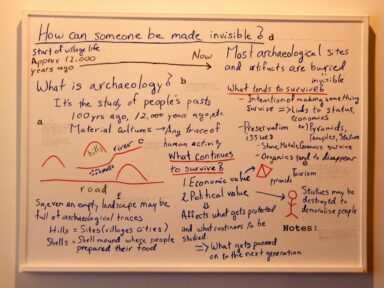 How can someone be made invisible?
d
Start of village life
Approx 12,000
years ago
Now
What is archaeology?
b
It's the study of people's pasts
100 yrs ago, 12,000 years ago, etc
a
Material cultures → Any trace of
human activity
c
hills
river
road
f
So, even an empty landscape may be
full of archaeological traces
Hills = Sites (villages cities)
Shells = Shell mound where people
prepared their food
Most archaeological sites
and artifacts are buried
invisible
What tends to survive?
- Intention of making something
survive => Links to status,
economics
- Preservation
issues
ex) Pyramids,
Temples, Statues
- Stone, Metals, Ceramics survive
- Organics tend to disappear
e
What continues
to survive?
1. Economic value →
Tourism
pyramids
2. Political value →
Statues may be
destroyed to
demoralise people
Affects what gets protected
and what continues to be
studied.
=> What gets passed
on to the next generation
Notes: